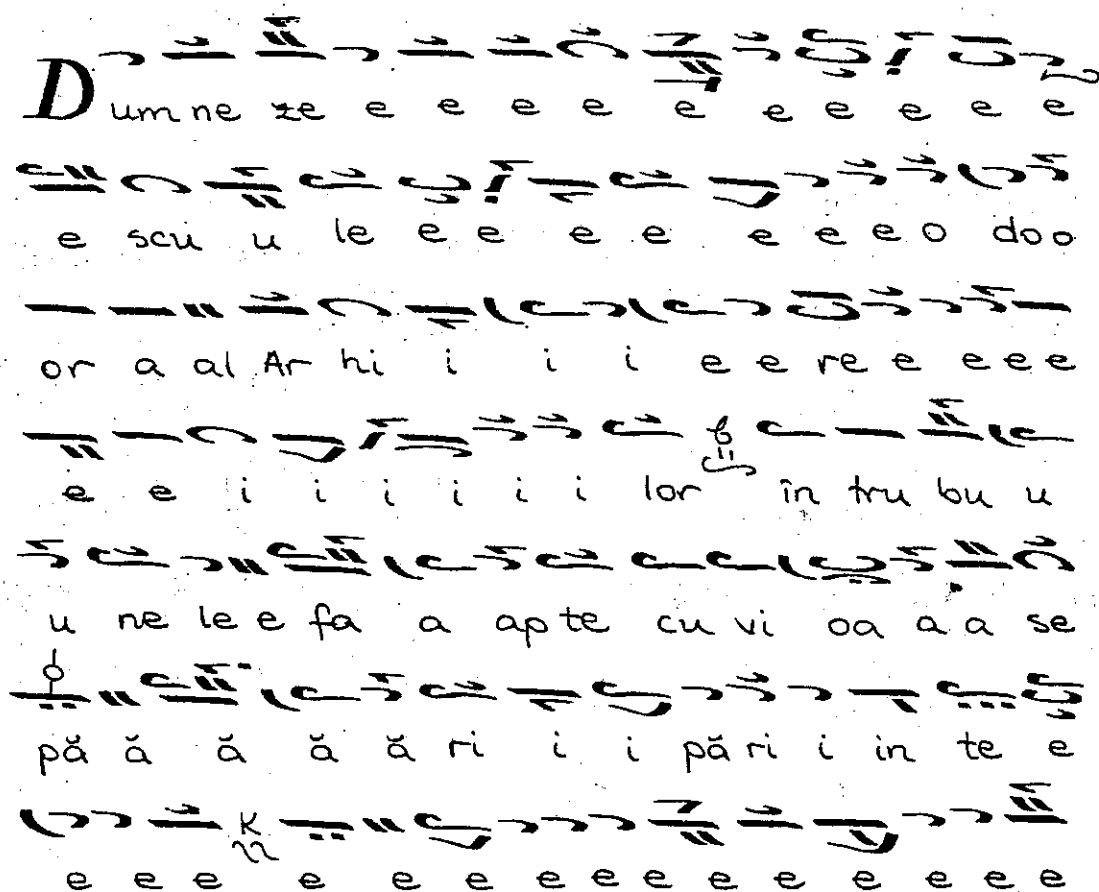 Dum ne ze e e e e e e e e e e
e scu u le e e e e e e e o do o
or a al Ar hi i i i e e re e e e e
e e i i i i i i lor în tru bu u
u ne le e fa a ap te cu vi oa a a se
pă ă ă ă ă ri i i pă ri i in te e
e e e e e e e e e e e e e e